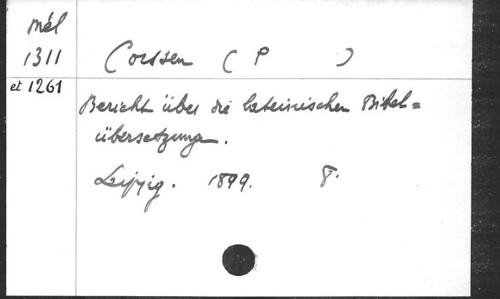 Mél
1311
et 1261
Corssen ( P )
Bericht über die lateinischen Bibel=
übersetzung.
Leipzig. 1899. 8°